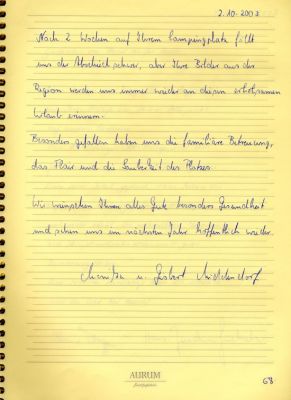 2.10.2003
Nach 2 Wochen auf Ihrem Campingplatz fällt
uns der Abschied schwer, aber Ihre Bilder aus der
Region werden uns immer wieder an diesen erholsamen
Urlaub erinnern.
Besonders gefallen haben uns die familiäre Betreuung,
das Flair und die Sauberkeit des Platzes.
Wir wünschen Ihnen alles Gute besonders Gesundheit
und sehen uns im nächsten Jahr hoffentlich wieder.
u. Middendorf
AURUM
68